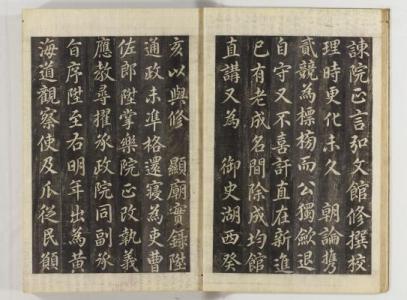 諫院正言弘文館修撰校
理時更化未久 朝論携
貳競為標榜而公獨歛退
自守又不喜訐直在新進
已有老成名間除成均館
直講又為 御史湖西癸
亥以與修 顯廟實錄陞
通政未準格還寢為吏曹
佐郎陞掌樂院正改執義
應教尋擢承政院同副承
旨序陞至右明年出為黃
海道觀察使及瓜從民願